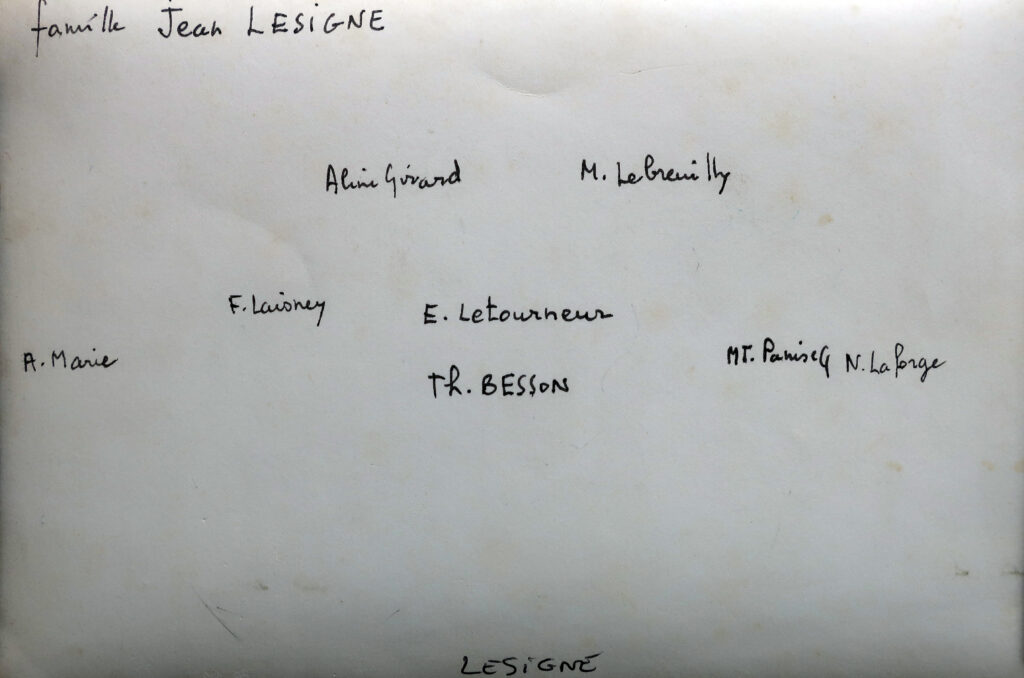 famille Jean LESIGNE
Aline Girard M. Lebreuilly
F. Laisney E. Letourneur
A. Marie MT. N. Laforge
Th. BESSON
LESIGNE